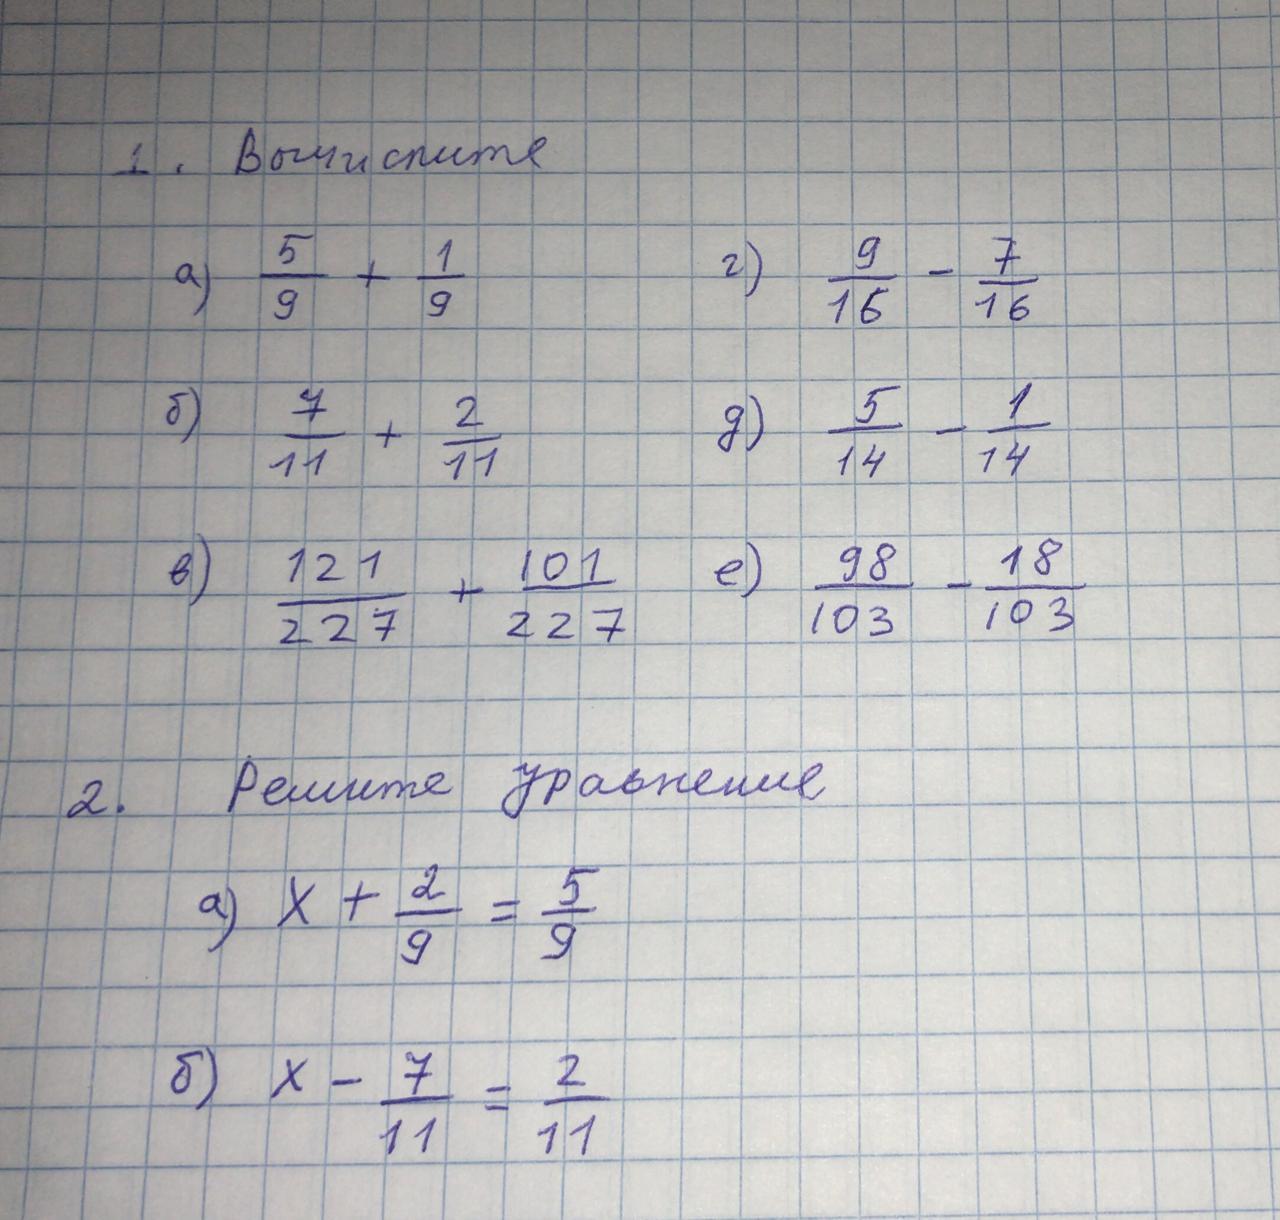 1. Вычислите
а) 5/9 + 1/9 г) 9/16 - 7/16
б) 7/11 + 2/11 д) 5/14 - 1/14
в) 121/227 + 101/227 е) 98/103 - 18/103
2. Решите уравнение
а) x + 2/9 = 5/9
б) x - 7/11 = 2/11